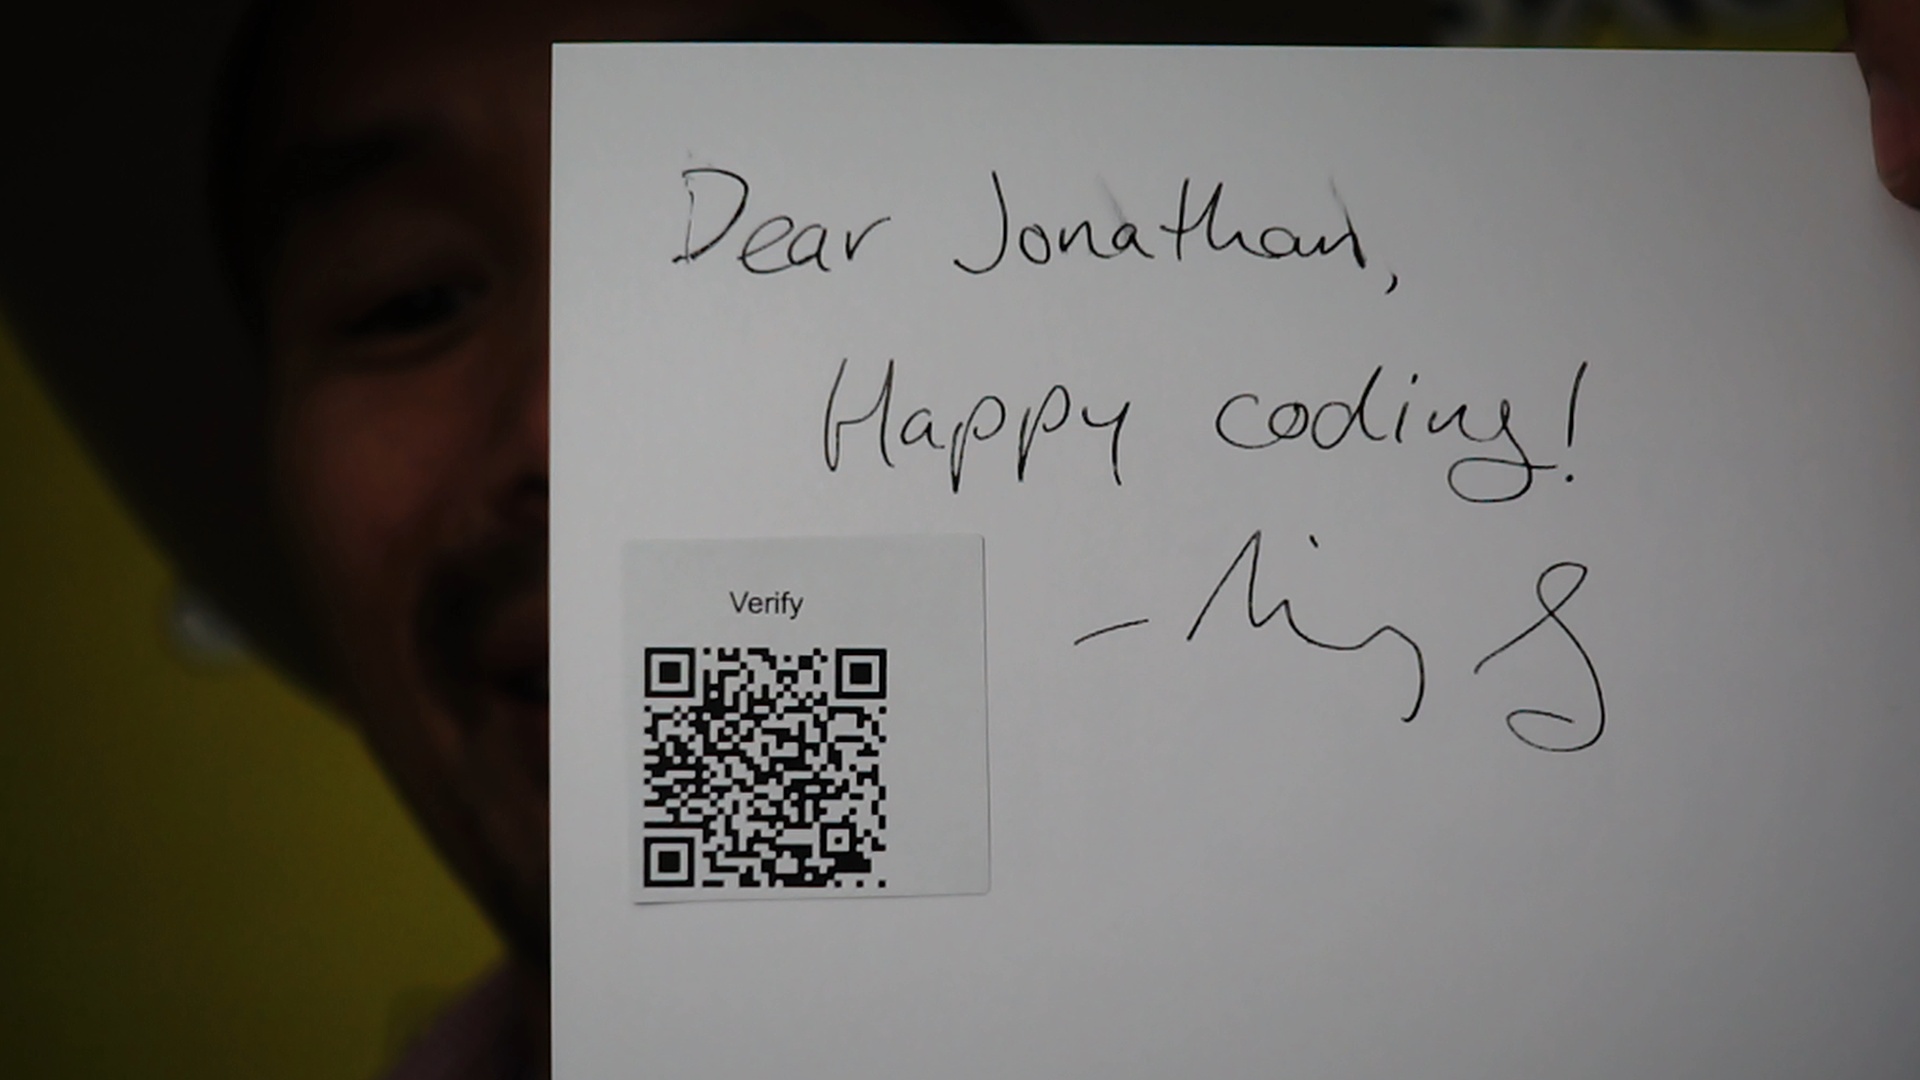 Dear Jonathan,
Happy coding!
Verify